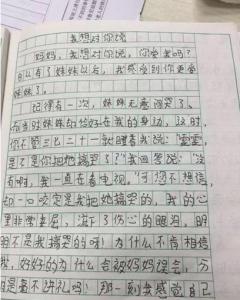 我想对你说
妈妈，我想对你说，你爱我吗？
自从有了妹妹以后，我感觉到你更爱
妹妹了。
记得有一次，妹妹无意间哭了。
而当时妹妹却恰好在我的身边，这时，
你不管三七二十一就瞪着我说："雪雪，
是不是你把她搞哭了？"我回答说："没
有啊，我一直在看电视。"可您不想信，
却一口咬定是我把她搞哭的，我的心
里非常委屈，流下了伤心的眼泪，明
明不是我搞哭的呀！为什么不肯相信
我，好好的为什么会被妈妈误会，
那一刻我感觉自己